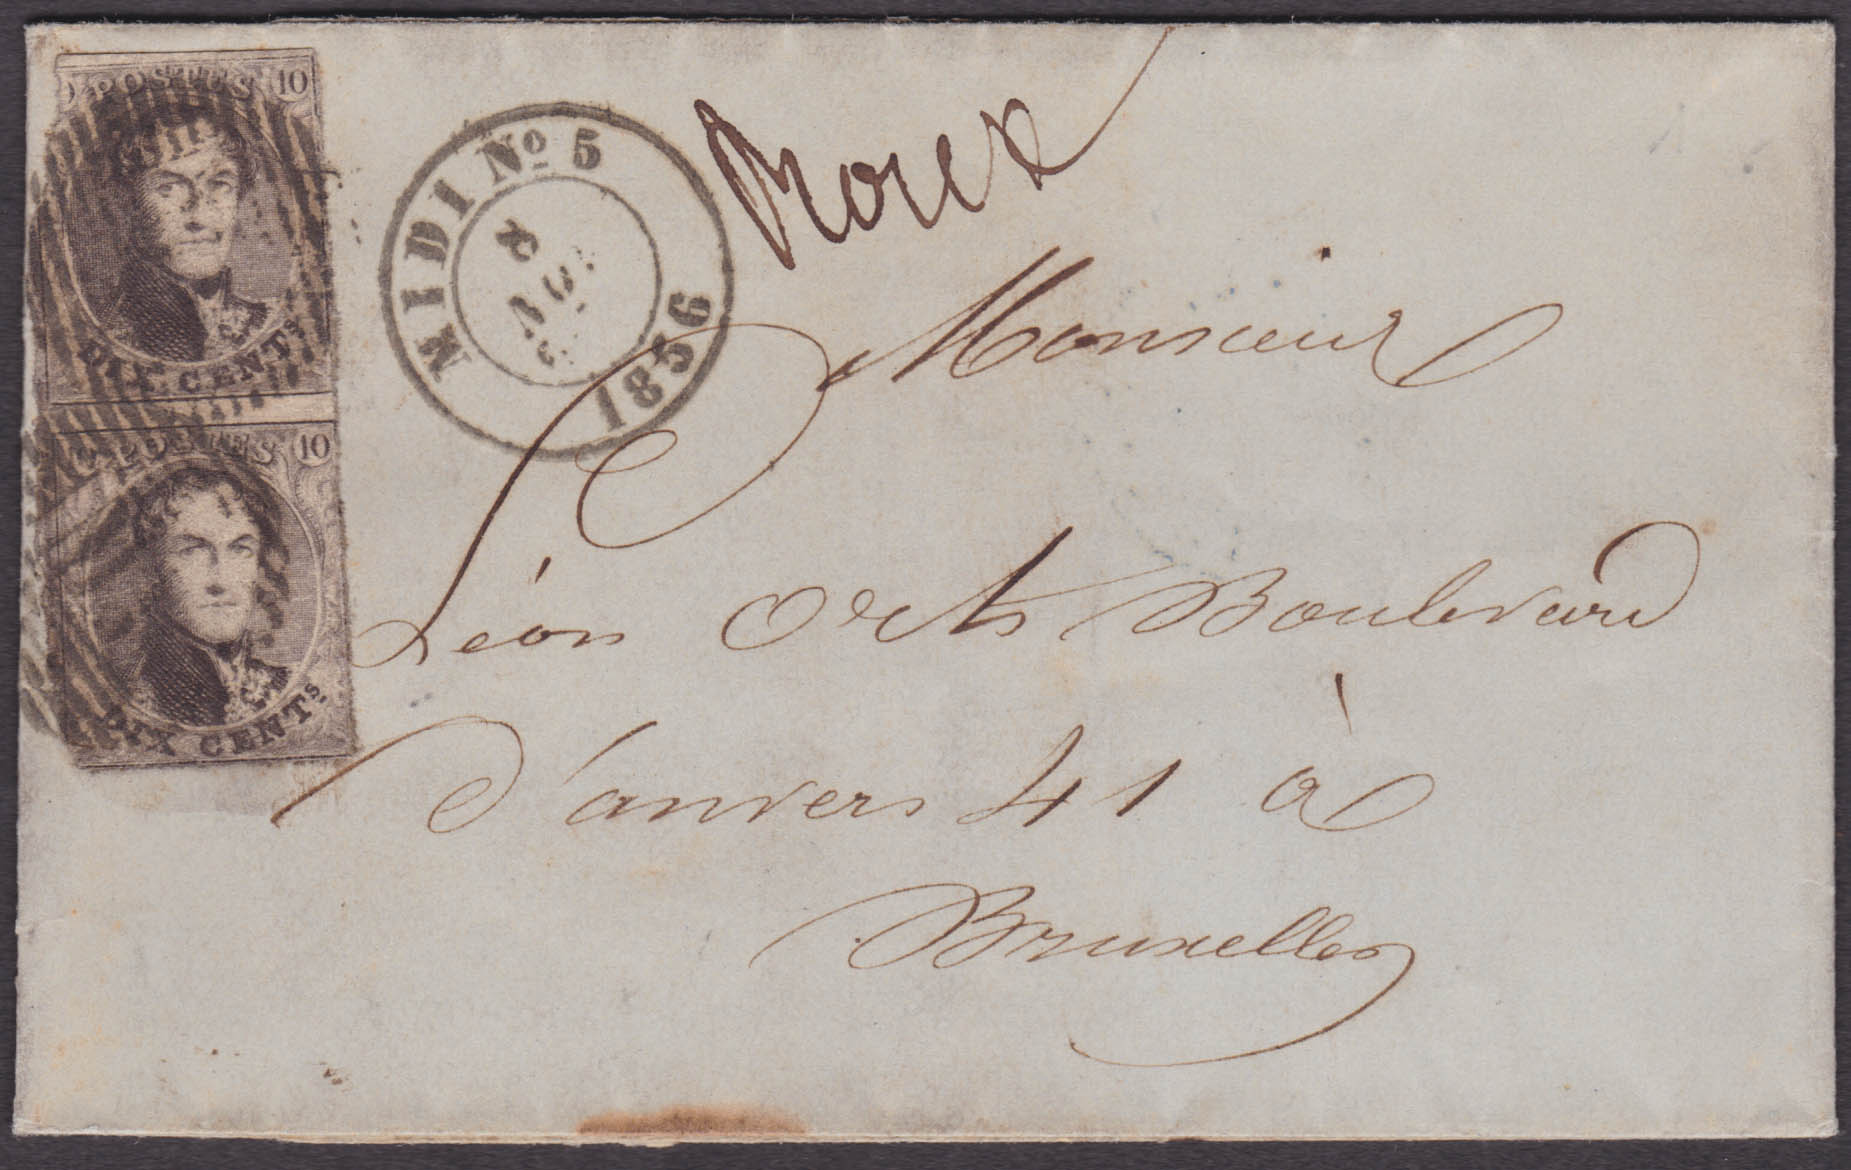 POSTES 10
DIX CENTS.
POSTES 10
DIX CENTS.
MIDI No 5
8
1856
Roux
Monsieur
Léon Orts Boulevard
d'anvers 41 à
Bruxelles